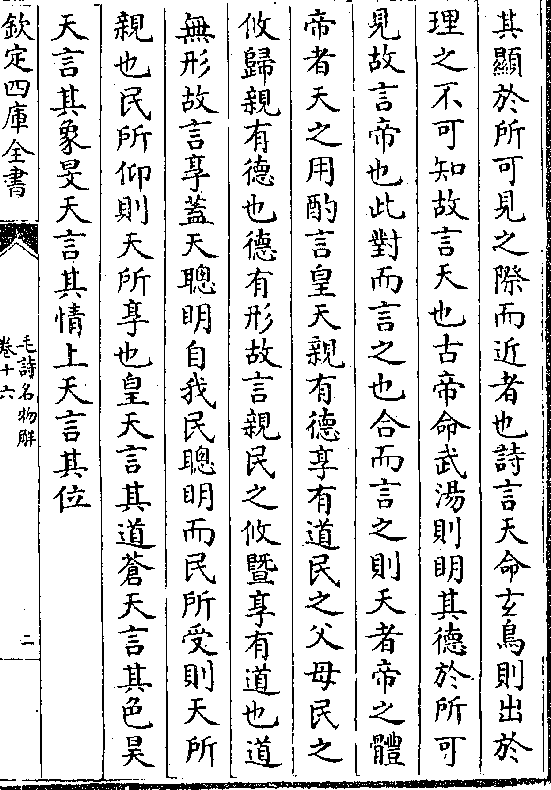 其顯於所可見之際而近者也詩言天命玄鳥則出於
理之不可知故言天也古帝命武湯則明其德於所可
見故言帝也此對而言之也合而言之則天者帝之體
帝者天之用酌言皇天親有德享有道民之父母民之
攸歸親有德也德有形故言親民之攸暨享有道也道
無形故言享蓋天聰明自我民聰明而民所受則天所
親也民所仰則天所享也皇天言其道蒼天言其色昊
天言其象旻天言其情上天言其位
欽定四庫全書
毛詩名物解
卷十六
二